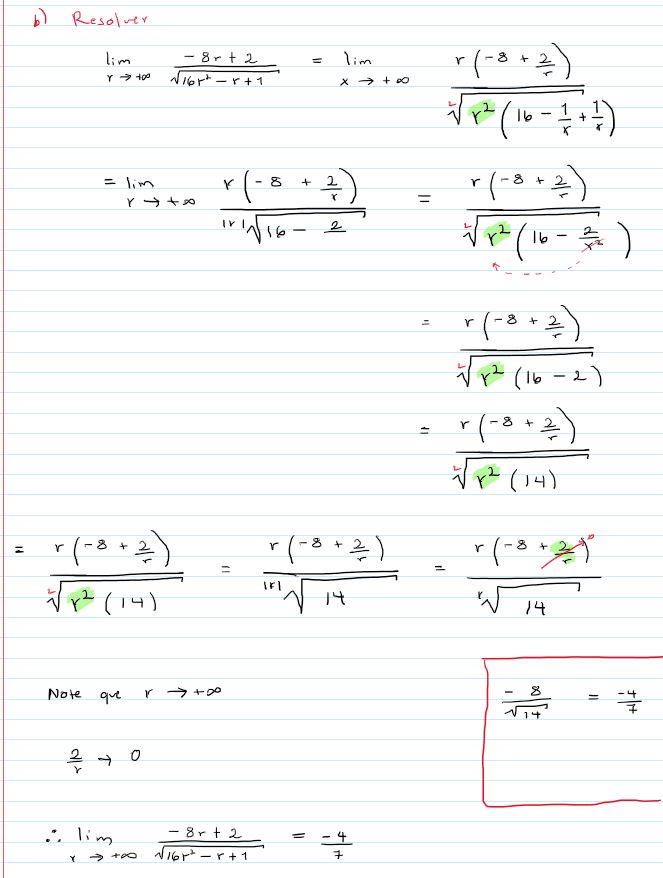 b) Resolver
lim r → +∞ (-8r + 2)/(√(16r² - r + 1)) = lim x → +∞ r(-8 + 2/r)/(²√(r²(16 - 1/r + 1/r)))
= lim r → +∞ r(-8 + 2/r)/(|r|√(16 - 2)) = r(-8 + 2/r)/(²√(r²(16 - 2/r²)))
= r(-8 + 2/r)/(²√(r²(16 - 2)))
= r(-8 + 2/r)/(²√(r²(14)))
= r(-8 + 2/r)/(²√(r²(14))) = r(-8 + 2/r)/(|r|√14) = r(-8 + 2/r)⁰/(r√14)
Note que r → +∞
-8/√14 = -4/7
2/r → 0
∴ lim r → +∞ (-8r + 2)/(√(16r² - r + 1)) = -4/7